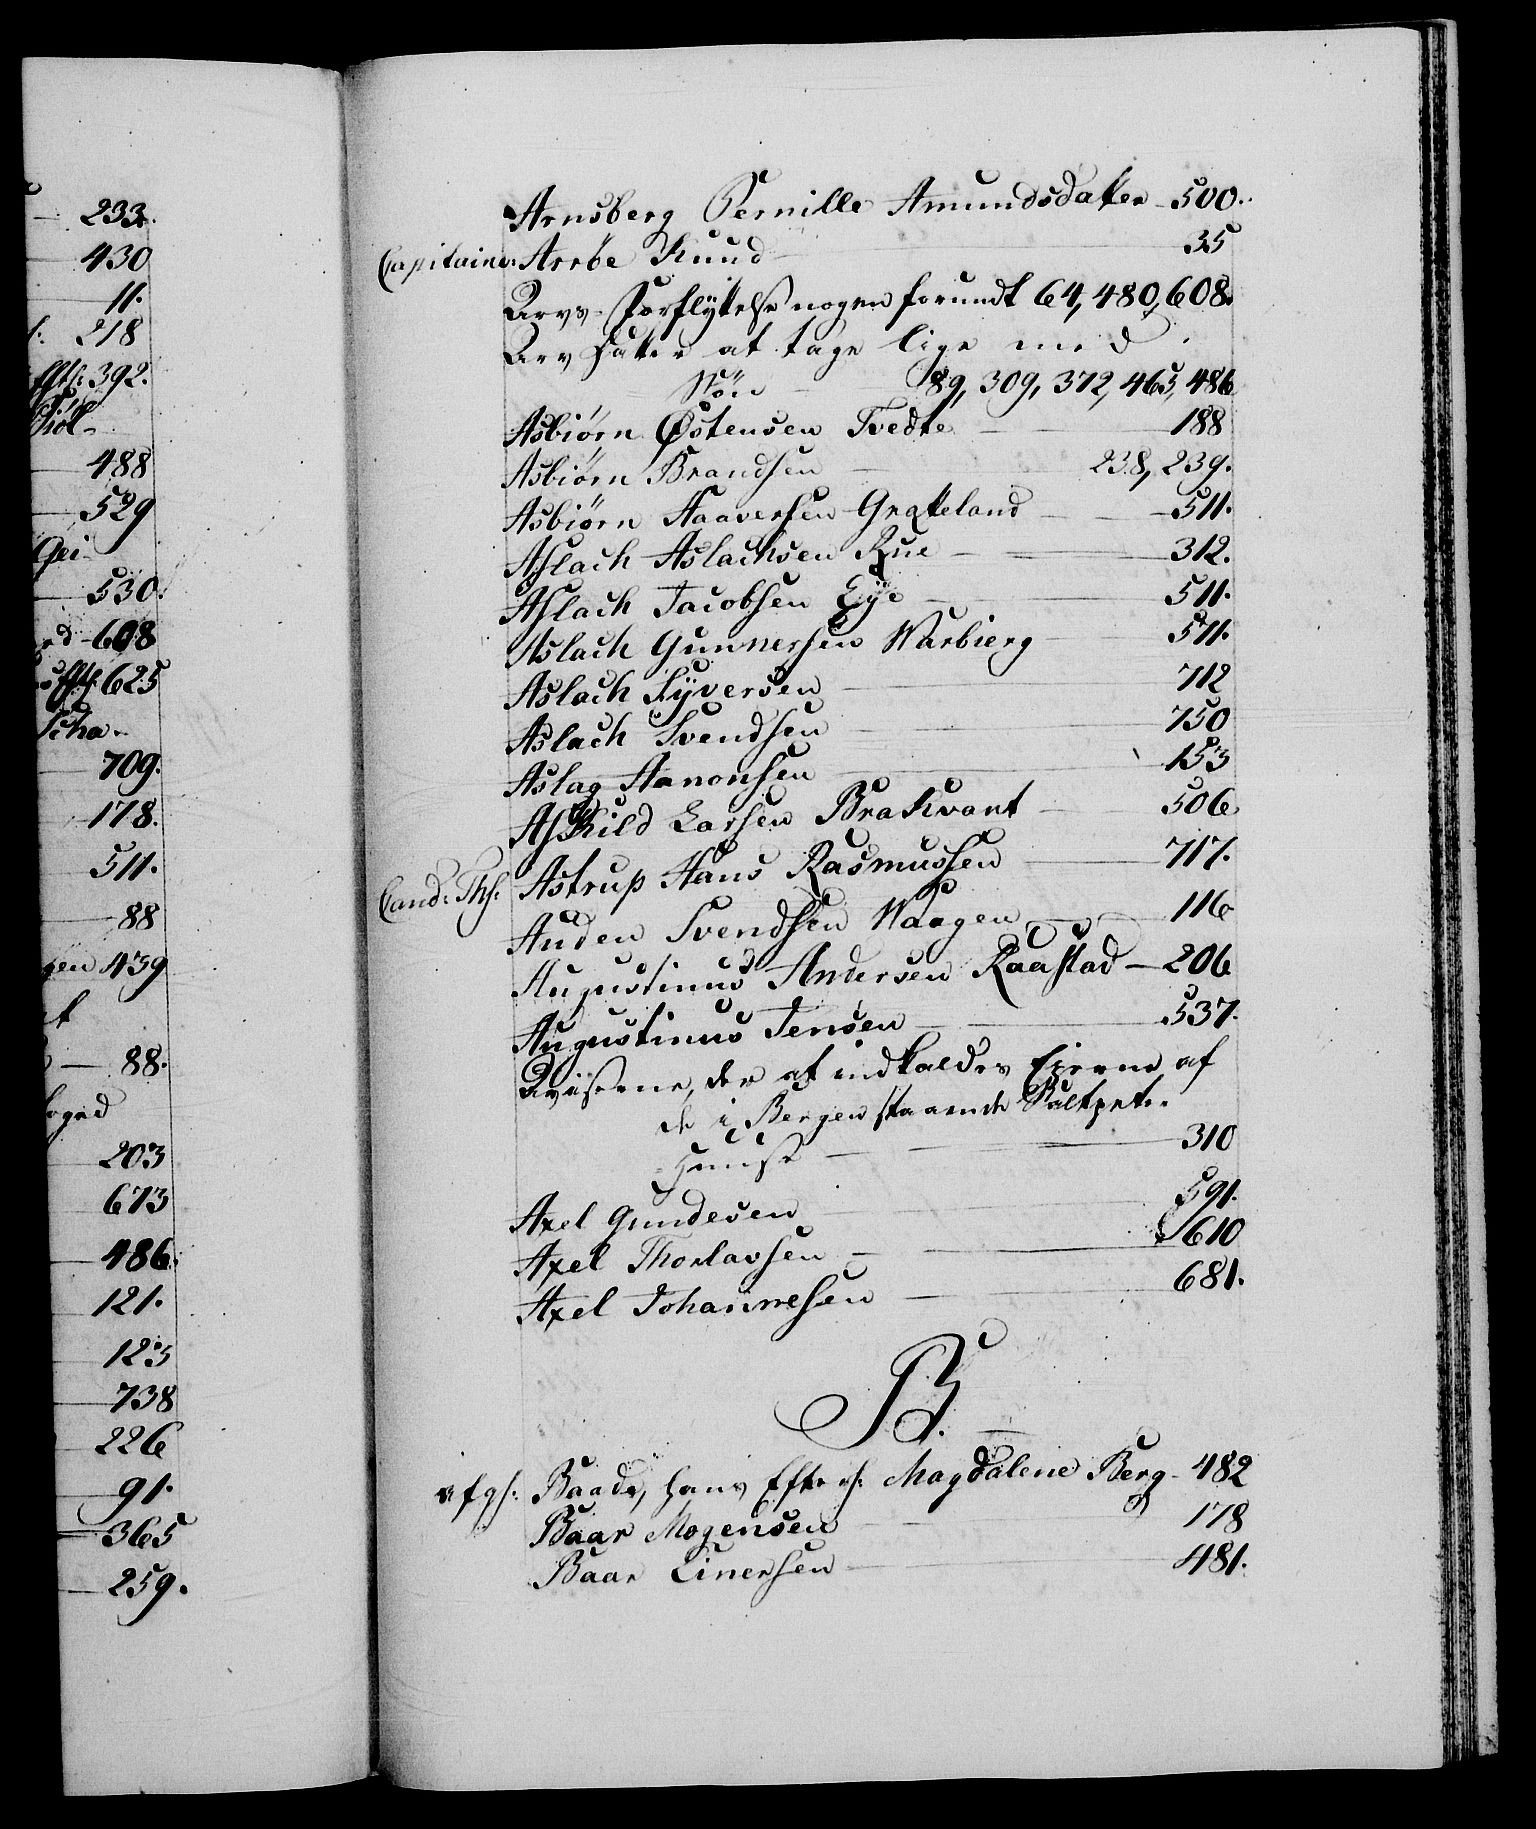 233.
430
11.
218
392.
488
529
530.
608
625
709.
178.
511.
88
439
88.
203
673
486.
121.
123
738
226
91.
365
259.
Arnsberg Pernille Amundsdatter 500.
Capitaine Arrøe Knud 35
Arvs-Forflyttelse nogen forundt 64, 480, 608.
Arv Døttre at tage lige med
Søn 89, 309, 372, 465, 486
Asbiørn Østensen Tvedte 188
Asbiørn Brandsen 238, 239.
Asbiørn Haaversen Grotteland 511.
Aslach Aslachsen Rue 312.
Aslach Jacobsen Eye 511.
Aslach Gunnersen Warbierg 511.
Aslach Syversen 712
Aslach Svendsen 750
Aslag Aanonsen 153
Askild Larsen Brakvant 506
Cand: Th: Astrup Hans Rasmussen 717.
Auden Svendsen Waagen 116
Augustinus Andersen Raastad 206
Augustinus Jensen 537.
Aviserne, der at indkaldes Eierne af
de i Bergen staaende Saltpeter
Huuse 310
Axel Gundesen 591.
Axel Thorlavsen 610
Axel Johannesen 681.
B.
afg: Baade, hans Efterl: Magdalene Berg 482
Baar Mogensen 178
Baar Einersen 481.